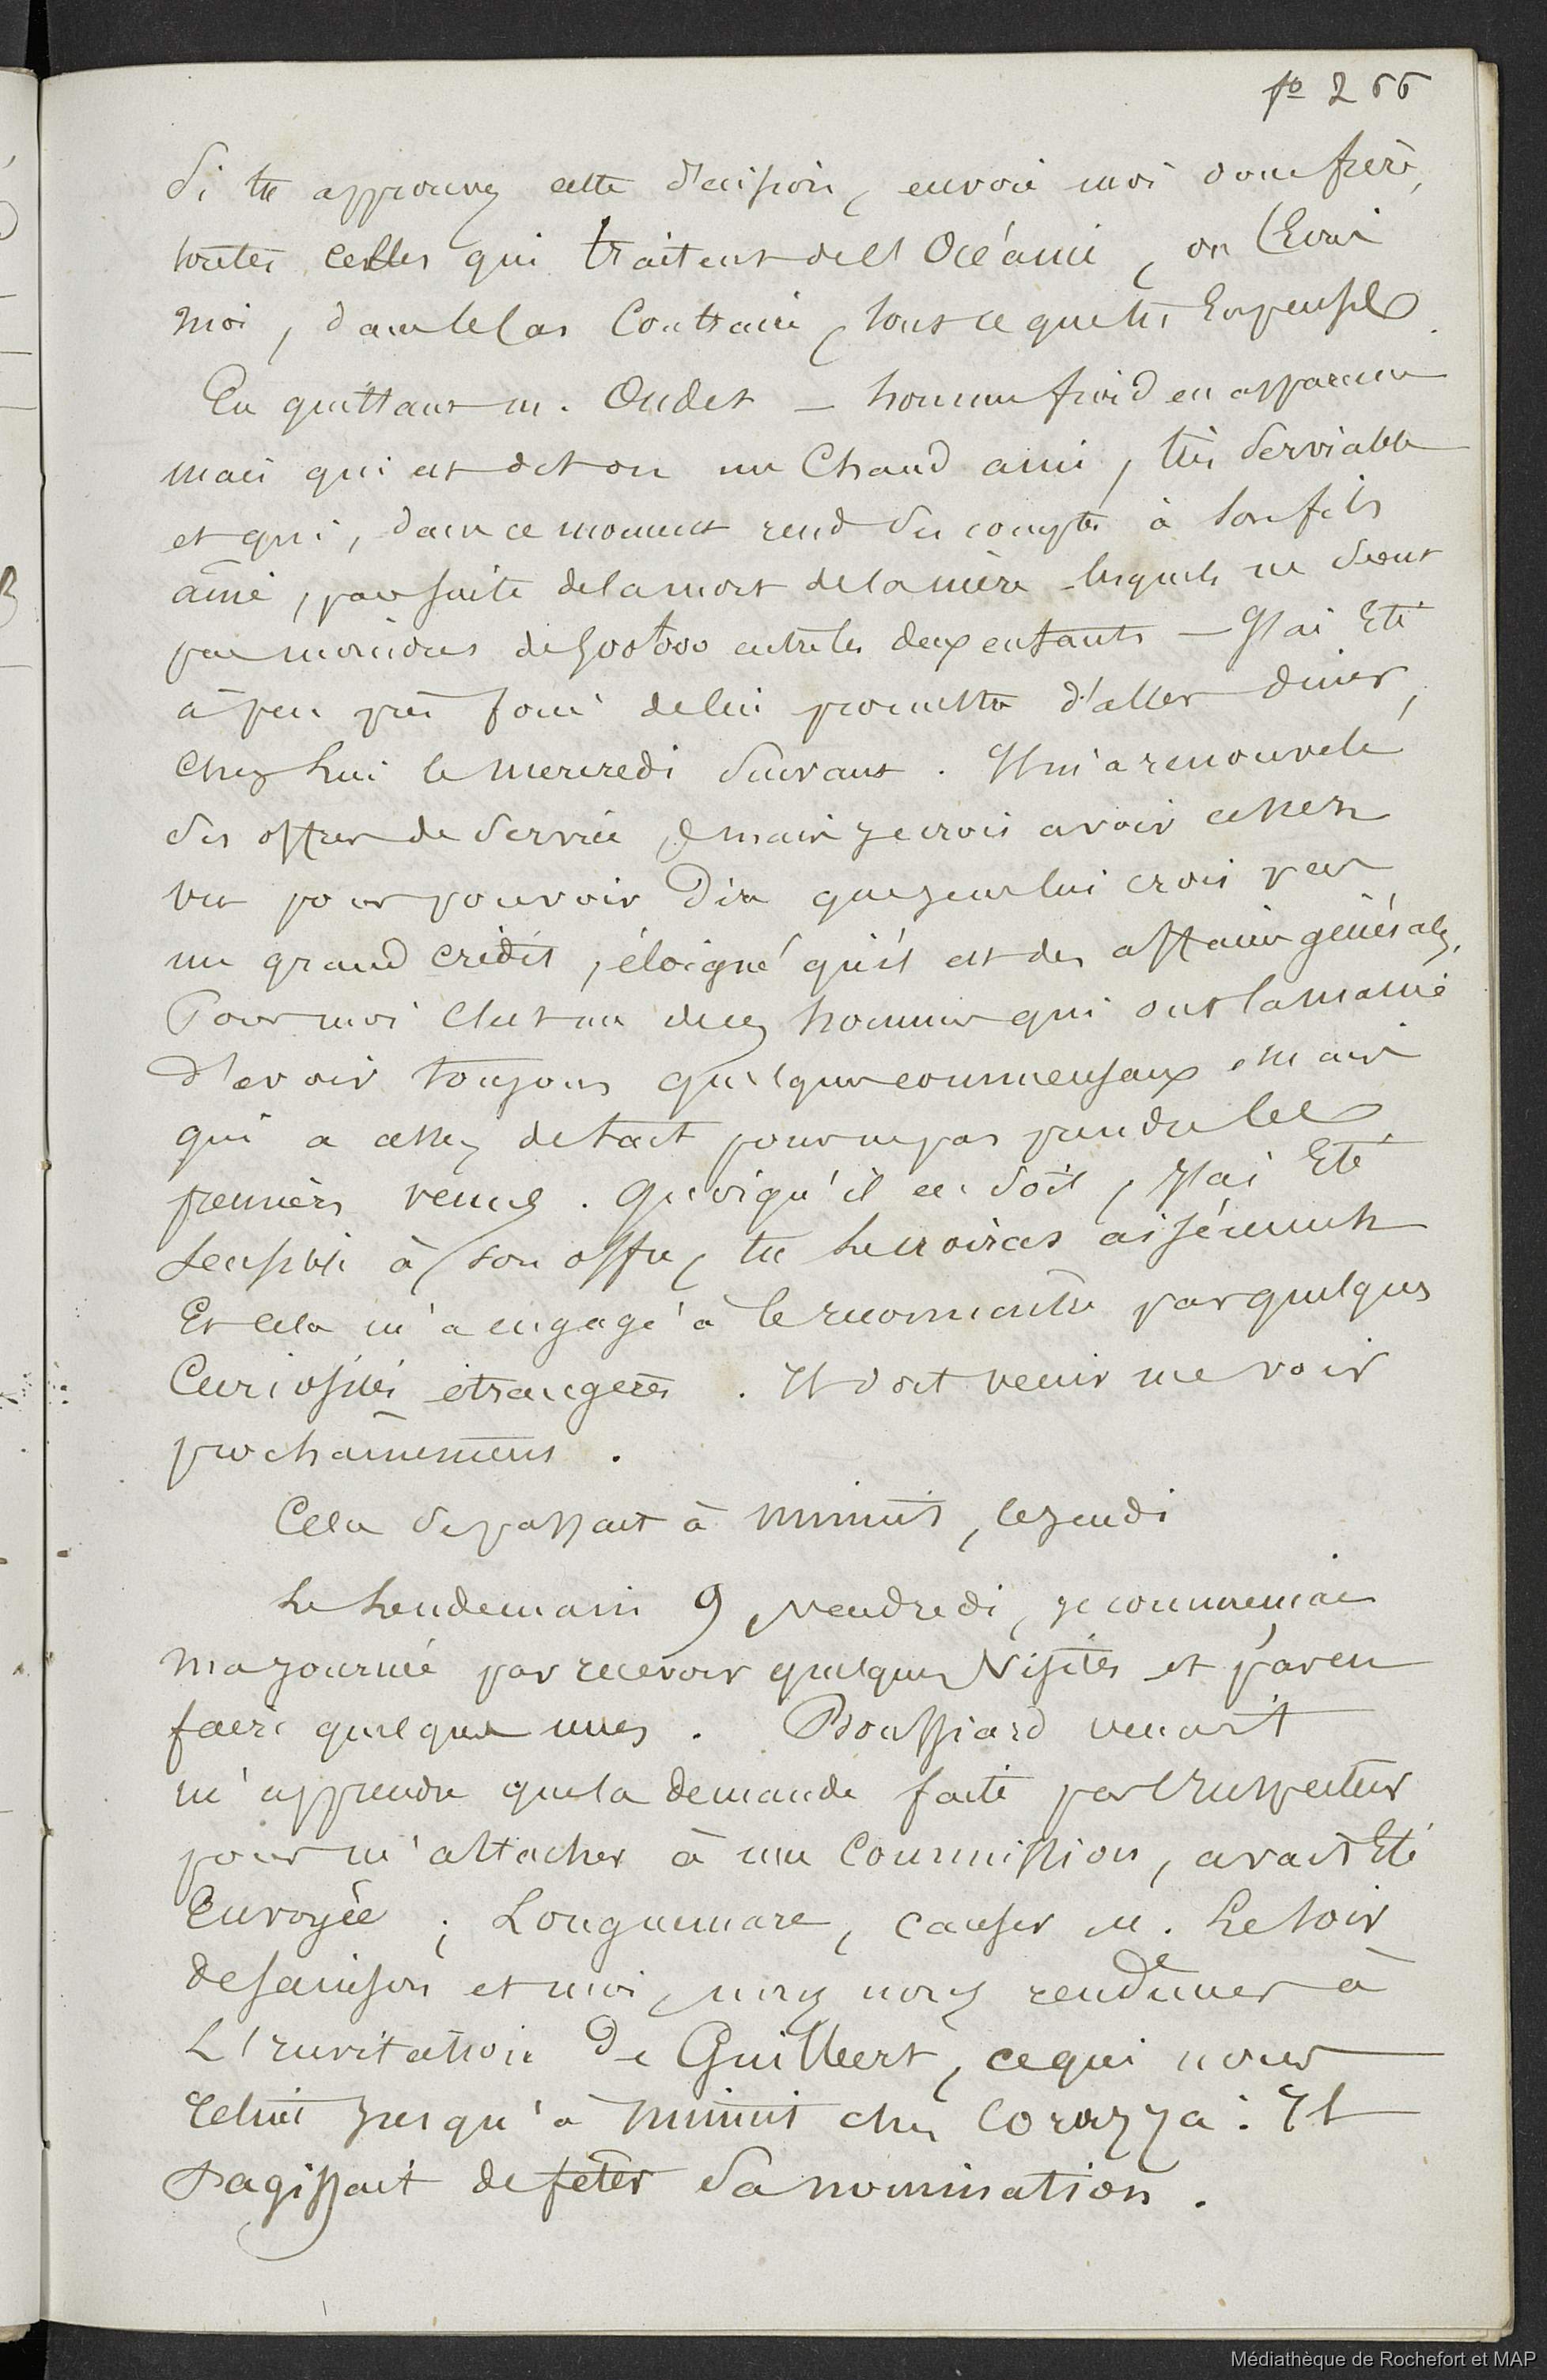 fo 266
Si tu approuves cette décision, envoie moi donc frère,
toutes celles qui traitent de l'Océanie, ou Ecris
moi, dans le Cas Contraire, tout ce que tu En penses.
En quittant m. Oudet — homme froid en apparence
mais qui est dit-on un Chaud ami, très Serviable
et qui, dans ce moment rend des comptes à son fils
aîné, par suite de la mort de la mère - lesquels ne Sont
pas moindres de 500 000 entre les deux enfants — J'ai Eté
à peu près forcé de lui promettre d'aller diner,
Chez Lui le mercredi Suivant. Il m'a renouvelé
Ses offres de Service, mais je crois avoir assez
vu pour pouvoir Dire que je ne lui crois pas
un grand crédit, éloigné qu'il est des affaires générales.
Pour moi C'est un de ces hommes qui ont la manie
d'avoir toujours quelques commensaux, mais
qui a assez de tact pour ne pas prendre les
premiers venus. Quoiqu'il en Soit, J'ai Eté
Sensible à son offre, tu Le croiras aisément
Et Cela m'a engagé à le reconnaître par quelques
Curiosités étrangères. Il doit venir me voir
prochainement.
Cela Se passait à minuit, le jeudi
Le Lendemain 9, vendredi, je commençai
ma journée par recevoir quelques Visites et par en
faire quelques unes. Bouffiard venait
m'apprendre que la demande faite par l'Inspecteur
pour m'attacher à une Commission, avait Eté
Envoyée; Longuemare, causer m. Le Soir
de Sainson et moi, nous nous rendîmes à
L'Invitation De Guilbert, ce qui nous
retint jusqu'à minuit chez Corazza: Il
S'agissait de fêter Sa nomination.
Médiathèque de Rochefort et MAP